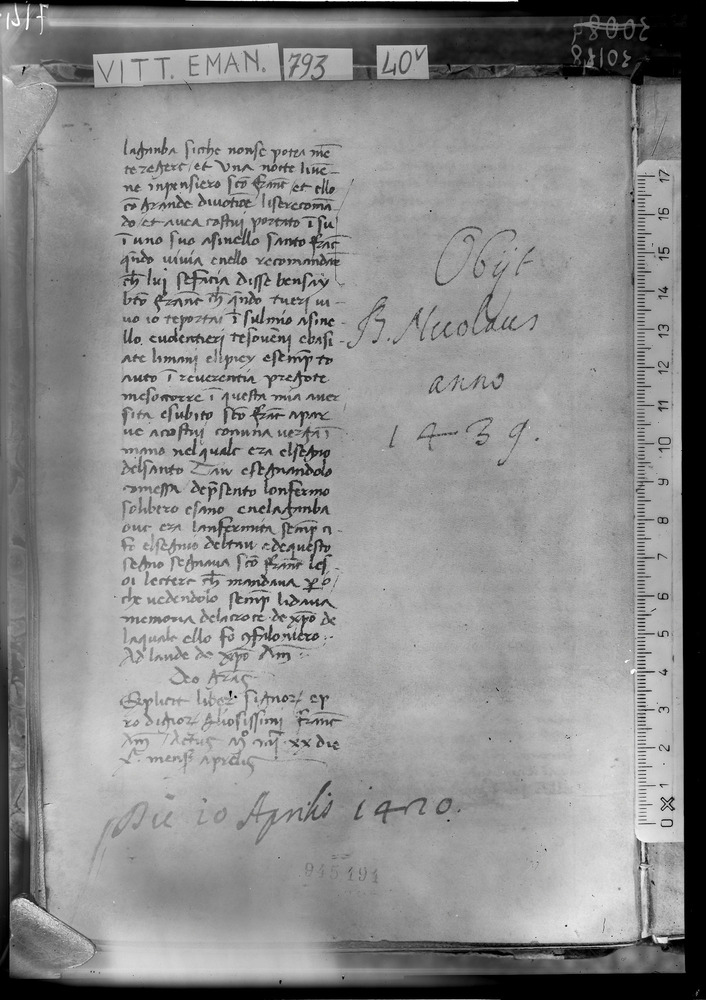 VITT. EMAN. 793 40v
laganba sicche nonse potea mē
te regere et Una notte live
ne inpensiero scō franc et ello
cō grande divotiōe liserecomā
do et avea costui portato ī su
ī uno suo asinello santo frāc
qndo vivia enello recomandare
ch lui sefacia disse bensay
btō franc ch qndo tueri vi
vo io teportai ī sulmio asine
llo. evolentieri tesoveni ebasi
ate limani elipiey esemp to
auto ī reverentia pregote
mesocorre ī questa mia aver
sita esubito scō franc apar
ve acostui conuna verga ī
mano nelquale era elsegno
delsanto Tau esegnandolo
comessa depsento lonfermo
solibero esano enelaganba
ove era lanfermita semp ci
fo elsegnio deltau edequesto
segno segnava scō franc
oi lectere ch mandava
che vedendolo semp lidava
memoria delacroce de xpō de
laquale ello fo cfaloniero
Ad laude de xpō Am
Deo grās
Explicit liber
franc
Am
xx die
X mens aprelis
Die 10 Aprilis 1420.
Obijt
B. Nicolaus
anno
1439.
945191
17
16
15
14
13
12
11
10
9
8
7
6
5
4
3
2
1
0